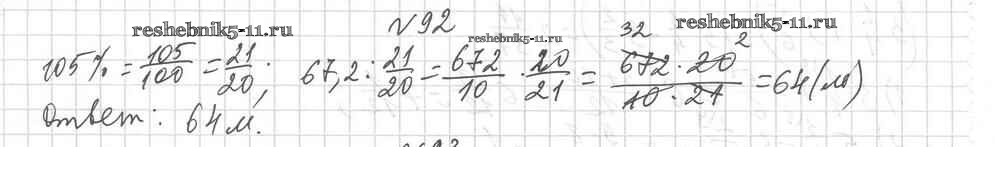 №92
reshebnik5-11.ru
reshebnik5-11.ru
reshebnik5-11.ru
105% = 105/100 = 21/20; 67,2 : 21/20 = 672/10 · 20/21 = 672 · 20/10 · 21 = 64 (м)
32
2
Ответ: 64 м.